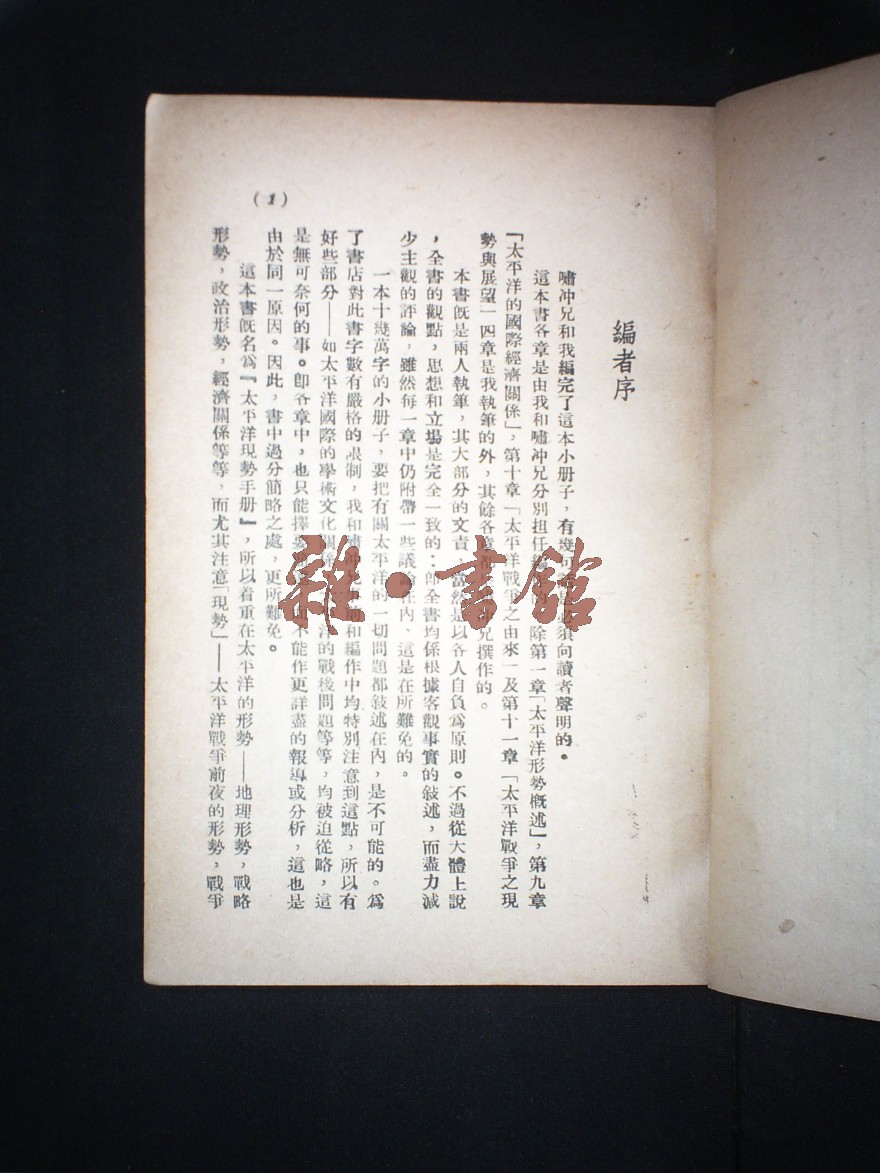 編者序
嘯冲兄和我編完了這本小册子，有幾句 必須向讀者聲明的。
這本書各章是由我和嘯冲兄分別担任編 的 除第一章「太平洋形勢概述」，第九章
「太平洋的國際經濟關係」，第十章「太平洋戰爭之由來」及第十一章「太平洋戰爭之現
勢與展望」四章是我執筆的外，其餘各章 兄撰作的。
本書既是兩人執筆，其大部分的文責 當然是以各人自負爲原則。不過從大體上說
，全書的觀點，思想和立場是完全一致的：即全書均係根據客觀事實的敍述，而盡力減
少主觀的評論，雖然每一章中仍附帶一些議論在內、這是在所難免的。
一本十幾萬字的小册子，要把有關太平洋的一切問題都敍述在內，是不可能的。爲
了書店對此書字數有嚴格的限制，我和嘯冲兄 前和編作中均特別注意到這點，所以有
好些部分——如太平洋國際的學術文化關係 洋的戰後問題等等，均被迫從略，這
是無可奈何的事。即各章中，也只能擇要 不能作更詳盡的報導或分析，這也是
由於同一原因。因此，書中過分簡略之處，更所難免。
這本書既名爲『太平洋現勢手册』，所以着重在太平洋的形勢——地理形勢，戰略
形勢，政治形勢，經濟關係等等，而尤其注意「現勢」——太平洋戰爭前夜的形勢，戰爭
(1)
雜·書館